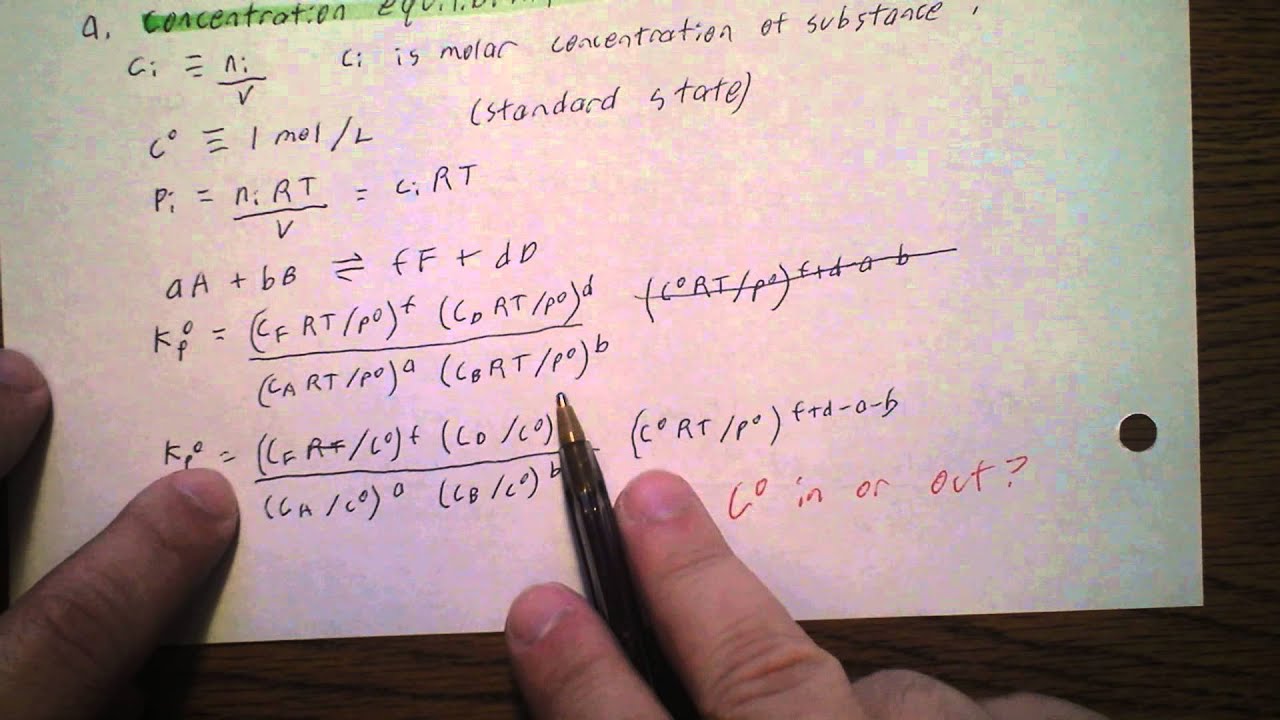 a. Concentration
ci ≡ ni/V ci is molar concentration of substance i
c° ≡ 1 mol/L (standard state)
Pi = niRT/V = ciRT
aA + bB ⇌ fF + dD
Kp° = (CF RT/P°)^f (CD RT/P°)^d / (CA RT/P°)^a (CB RT/P°)^b (C° RT/P°)^f+d-a-b
Kp° = (CF RT/C°)^f (CD/C°) / (CA/C°)^a (CB/C°)^b (C° RT/P°)^f+d-a-b
C° in or out?